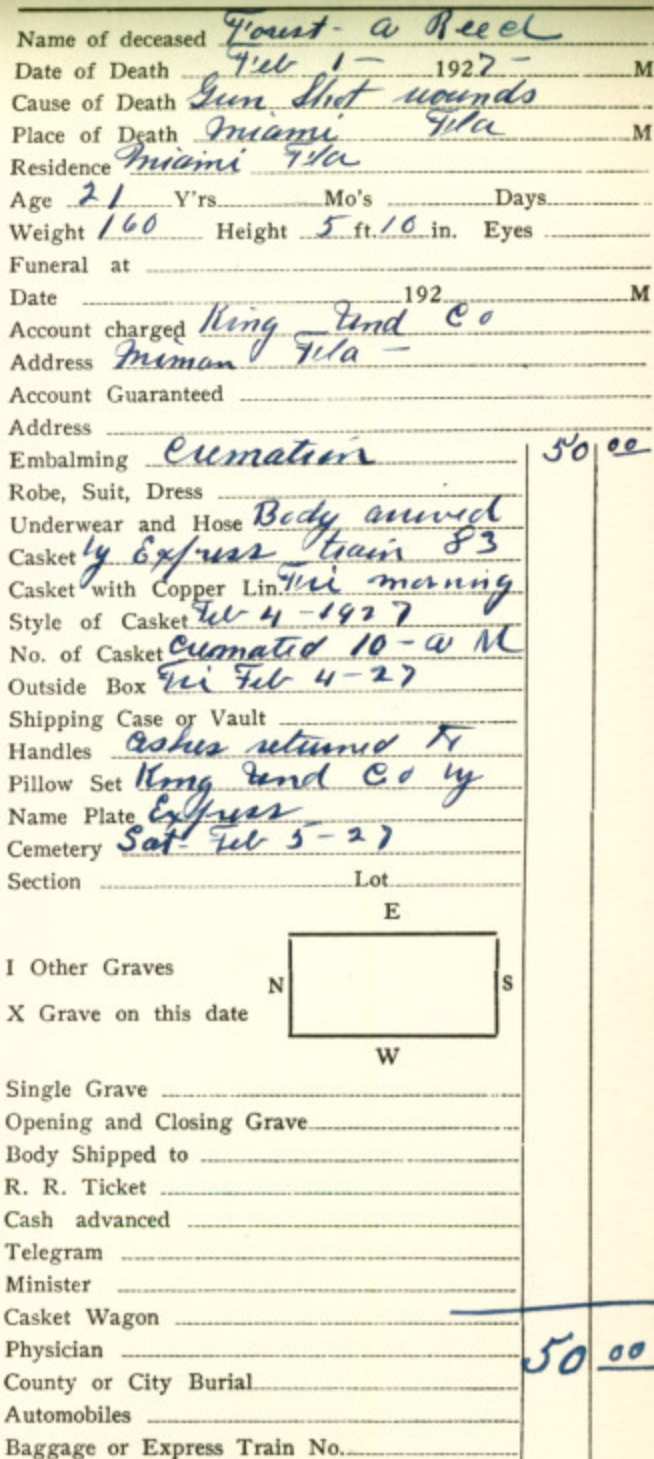 Name of deceased Forest - a Reed
Date of Death Feb 1 - 1927 - M
Cause of Death Gun Shot wounds
Place of Death Miami Fla M
Residence Miami Fla
Age 21 Y'rs Mo's Days
Weight 160 Height 5 ft. 10 in. Eyes
Funeral at
Date 192 M
Account charged King Und Co
Address Miman Fla -
Account Guaranteed
Address
Embalming Cremation 50 00
Robe, Suit, Dress
Underwear and Hose Body arrived
Casket by Express train 83
Casket with Copper Lin. Fri morning
Style of Casket Feb 4 - 1927
No. of Casket Cremated 10 - a M
Outside Box Fri Feb 4 - 27
Shipping Case or Vault
Handles ashes returned to
Pillow Set King Und Co by
Name Plate Express
Cemetery Sat - Feb 5 - 27
Section Lot
E
I Other Graves
N S
X Grave on this date
W
Single Grave
Opening and Closing Grave
Body Shipped to
R. R. Ticket
Cash advanced
Telegram
Minister
Casket Wagon
Physician 50 00
County or City Burial
Automobiles
Baggage or Express Train No.